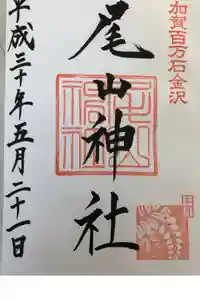 加賀百万石金沢
尾山神社
平成三十年五月二十一日